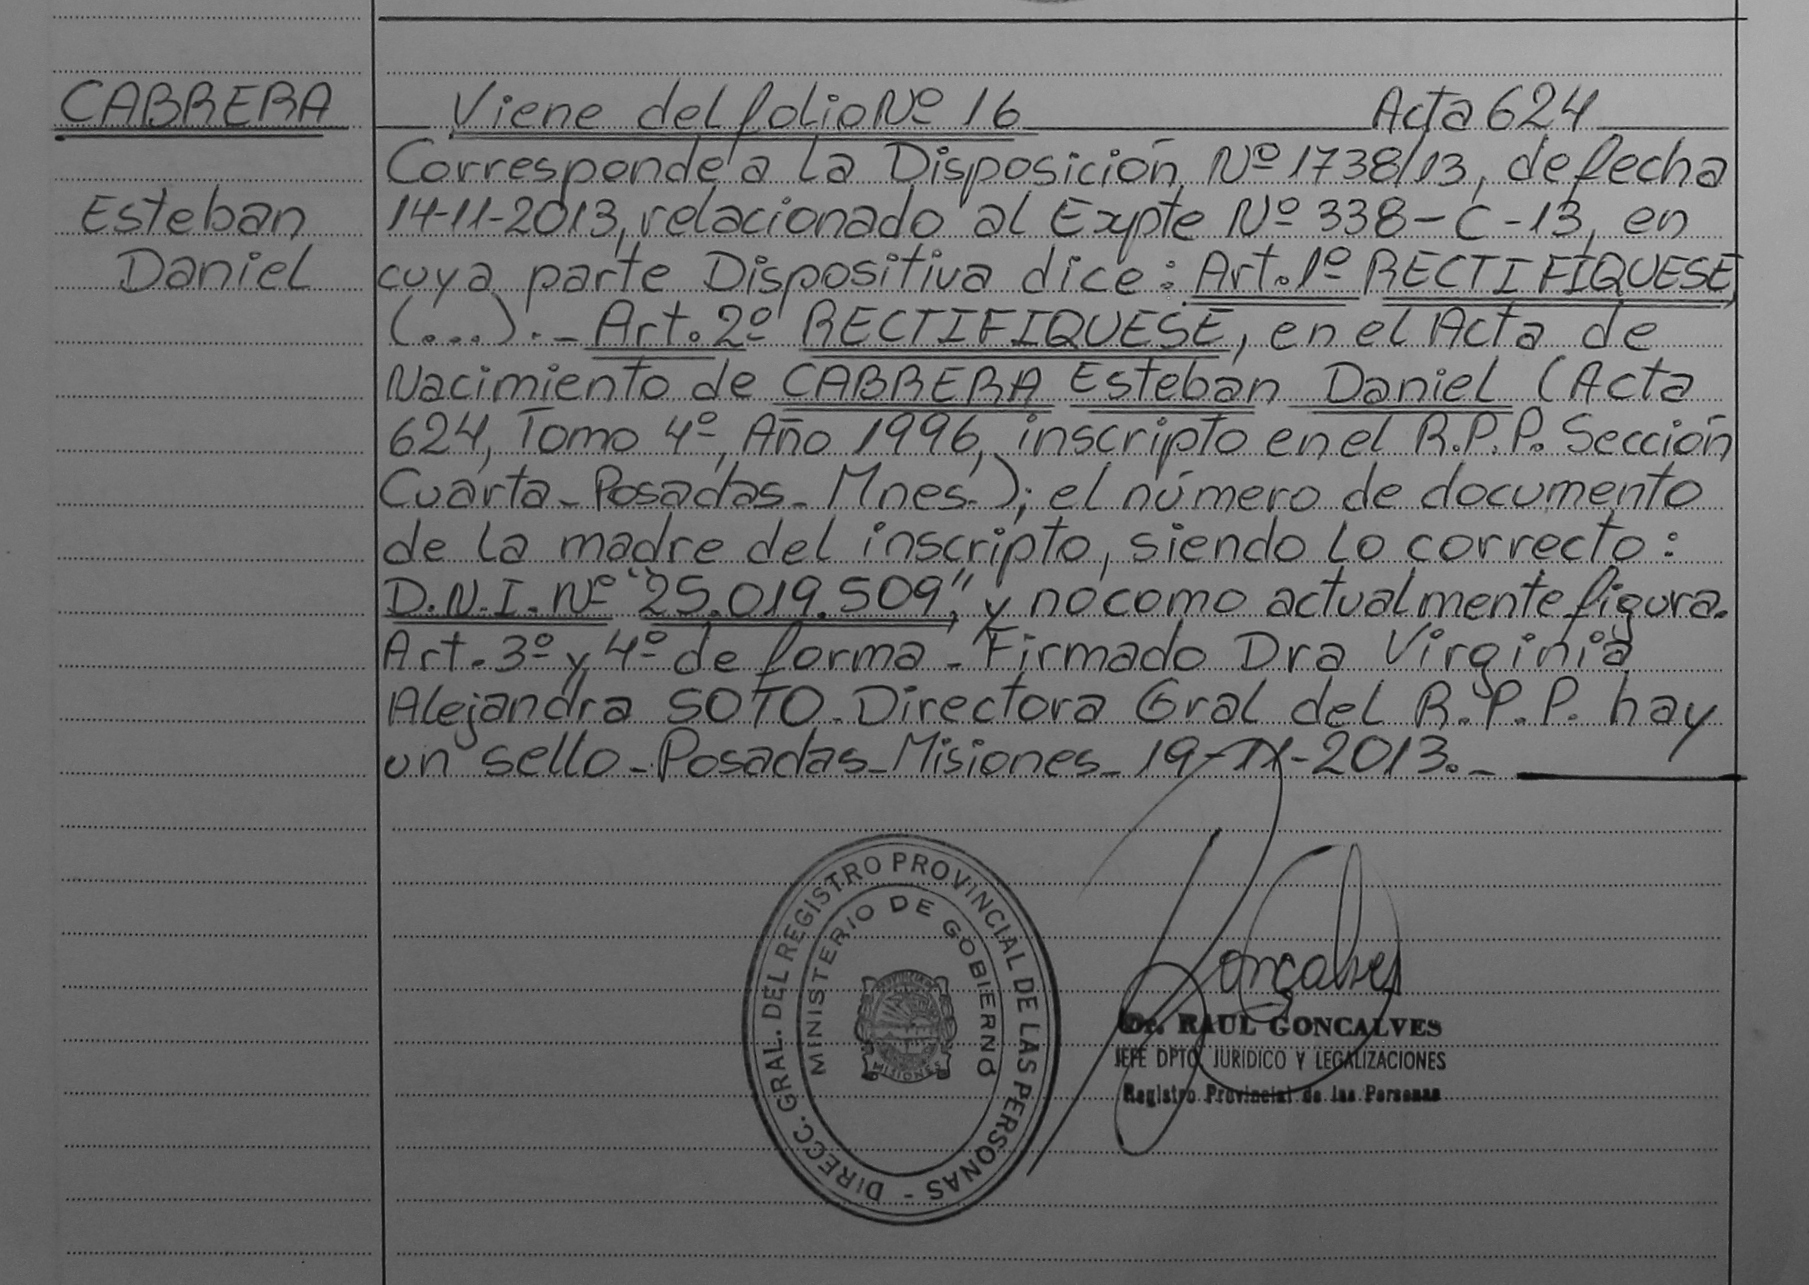 CABRERA
Esteban
Daniel
Viene del folio Nº 16 Acta 624
Corresponde a la Disposición Nº 1738/13, de fecha
14-11-2013, relacionado al Expte Nº 338-C-13, en
cuya parte Dispositiva dice: Art. 1º RECTIFIQUESE,
(...).- Art. 2º RECTIFIQUESE, en el Acta de
Nacimiento de CABRERA Esteban Daniel (Acta
624, Tomo 4º, Año 1996, inscripto en el R.P.P. Sección
Cuarta - Posadas - Mnes.); el número de documento
de la madre del inscripto, siendo lo correcto:
D.N.I. Nº "25.019.509", y no como actualmente figura.
Art. 3º y 4º de forma - Firmado Dra Virginia
Alejandra SOTO - Directora Gral del R.P.P. hay
un sello - Posadas - Misiones - 19-11-2013.-
DIRECC. GRAL. DEL REGISTRO PROVINCIAL DE LAS PERSONAS -
MINISTERIO DE GOBIERNO
MISIONES
Goncalves
Dr. RAUL GONCALVES
JEFE DPTO JURIDICO Y LEGALIZACIONES
Registro Provincial de las Personas